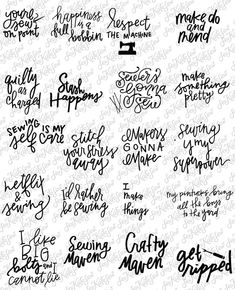 you're
seam
on point
happiness
is a
full
bobbin
respect
THE MACHINE
make do
and
mend
guilty
as
charged
Stash
Happens
Sewers
gonna
Sew
make
something
pretty
SEWING IS MY
self care
stitch
your stress
away
MAKERS
GONNA
Make
sewing
is my
superpower
netflix
&
sewing
I'd rather
be sewing
I
make
things
my pinkings bring
all the boys
to the yard
I like
BIG
bolts and I
cannot lie
Sewing
Maven
Crafty
Maven
get
ripped